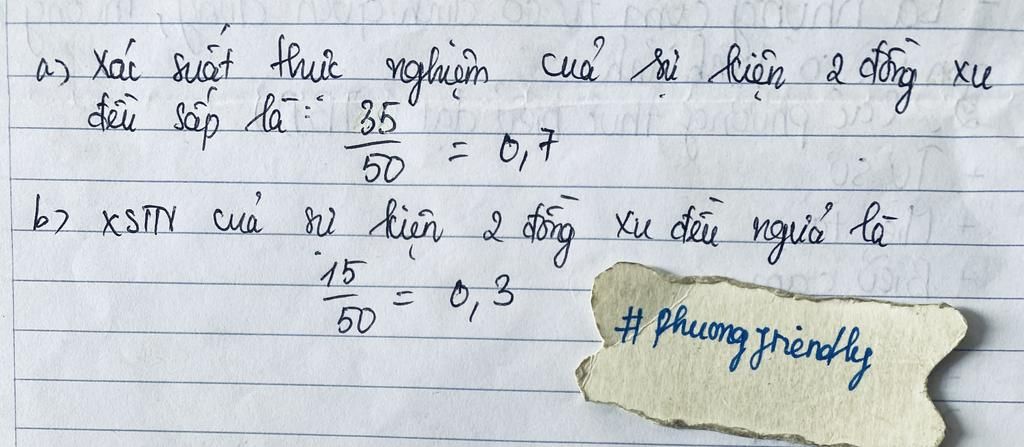 a) Xác suất thực nghiệm cuả sự kiện 2 đồng xu
đều sấp là: 35/50 = 0,7
b) XSTN cuả sự kiện 2 đồng xu đều ngửả là
15/50 = 0,3
# phuong friendly